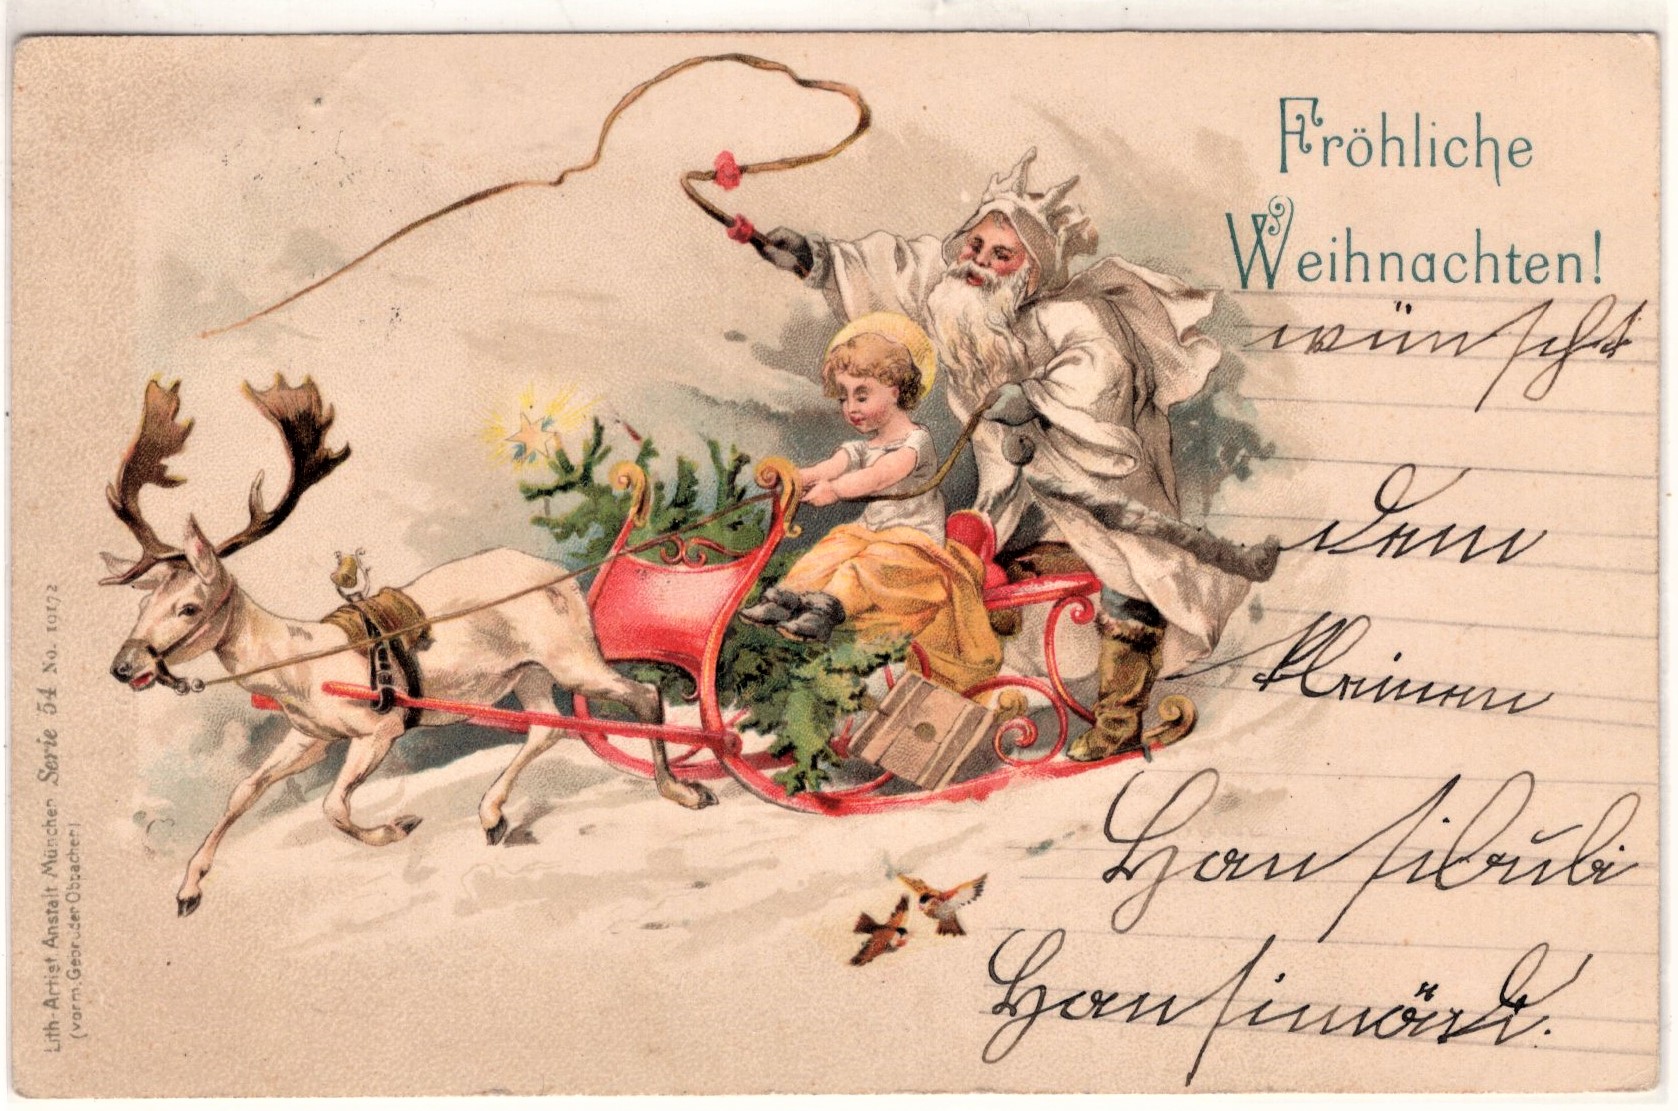 Fröhliche
Weihnachten!
wünscht
dem
kleinen
Hansibubi
Lith-Artist Anstalt München Serie 54 No. 19172
(vorm. Gebrüder Obpacher)